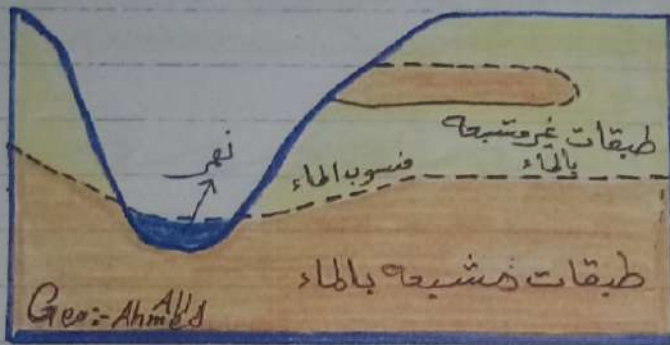 نهر
طبقات غير مشبعه
بالماء
منسوب الماء
طبقات مشبعه بالماء
Geo:- Ahmed Ali